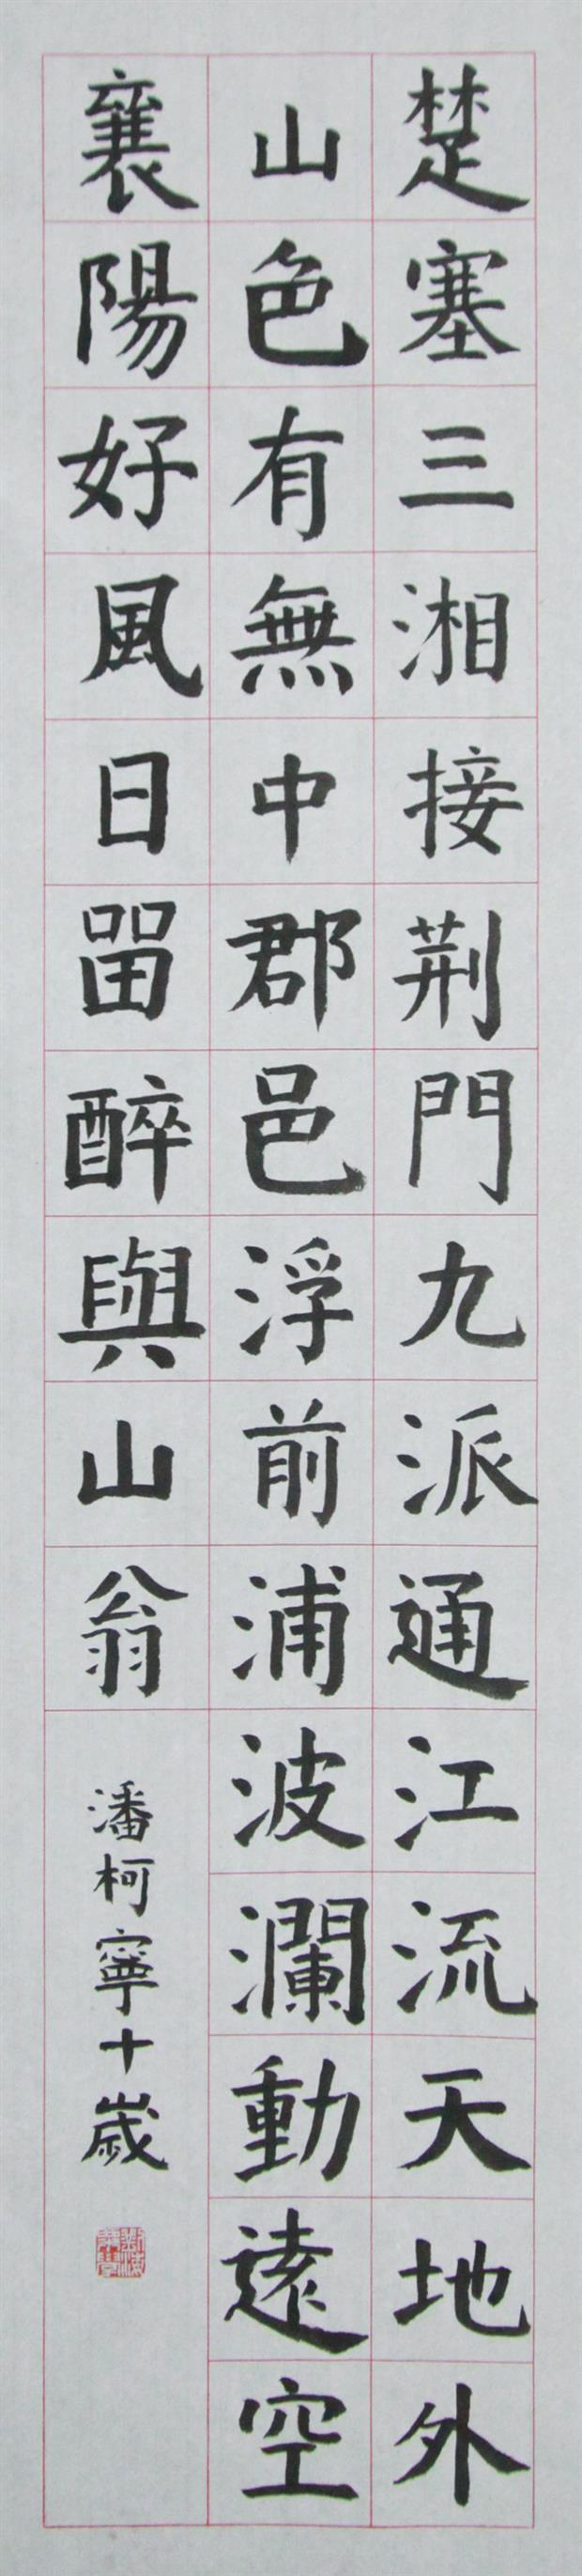 楚塞三湘接荆門九派通江流天地外
山色有無中郡邑浮前浦波瀾動遠空
襄陽好風日畱醉與山翁
潘柯寧十歲